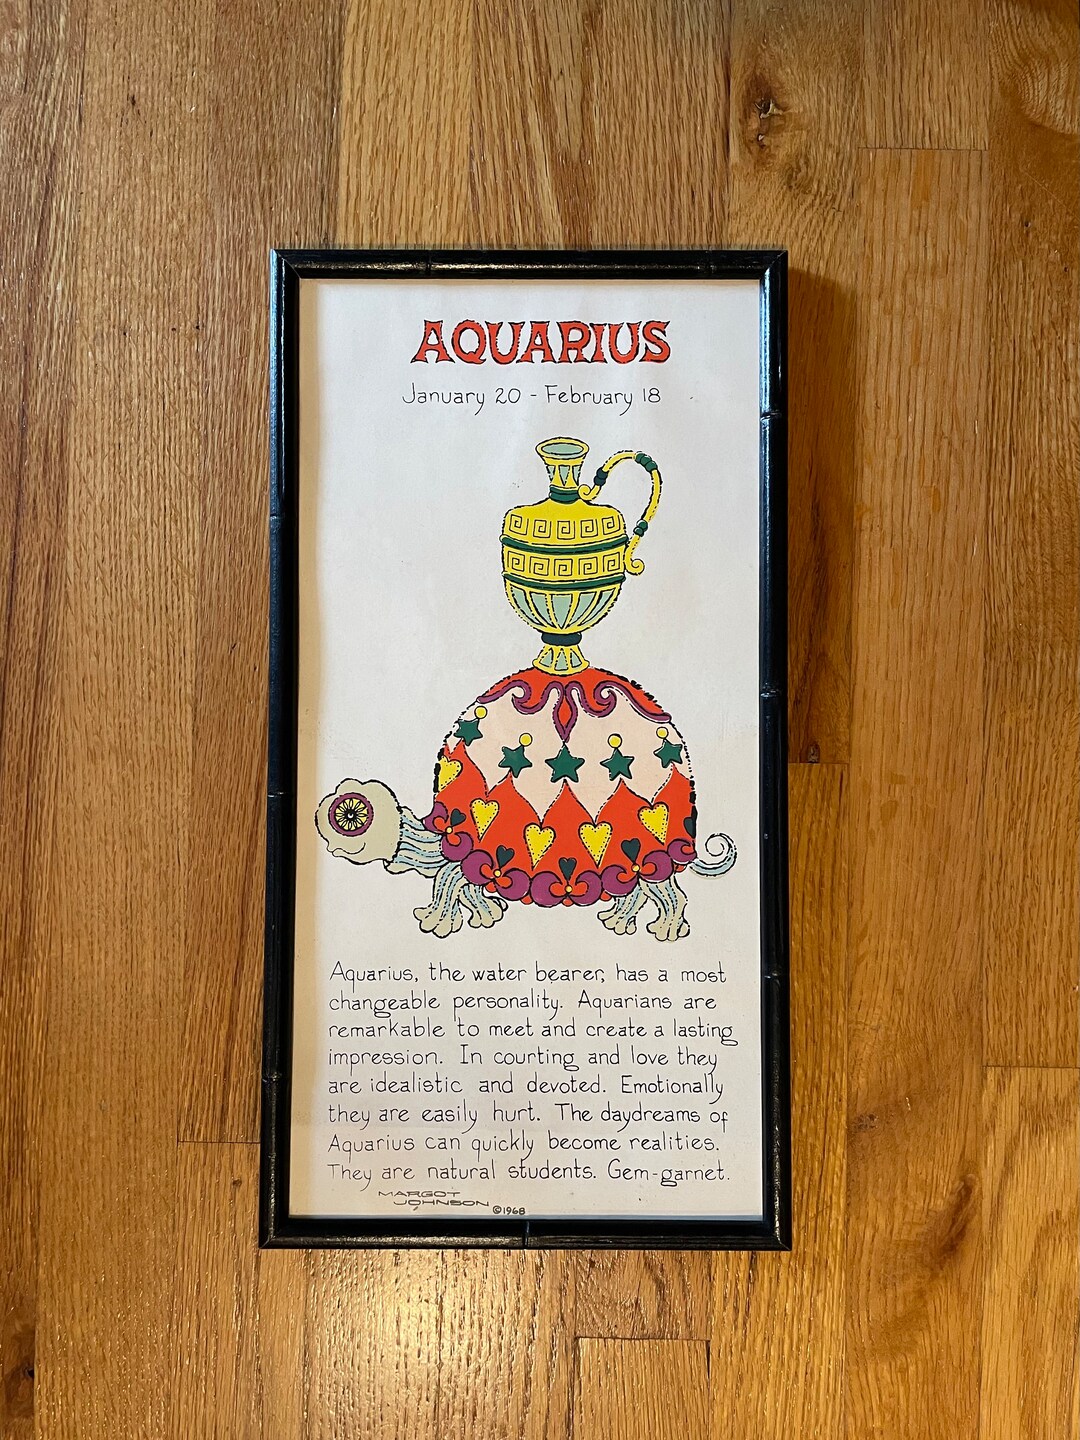 AQUARIUS
January 20 - February 18
Aquarius, the water bearer, has a most
changeable personality. Aquarians are
remarkable to meet and create a lasting
impression. In courting and love they
are idealistic and devoted. Emotionally
they are easily hurt. The daydreams of
Aquarius can quickly become realities.
They are natural students. Gem-garnet.
MARGOT
JOHNSON ©1968